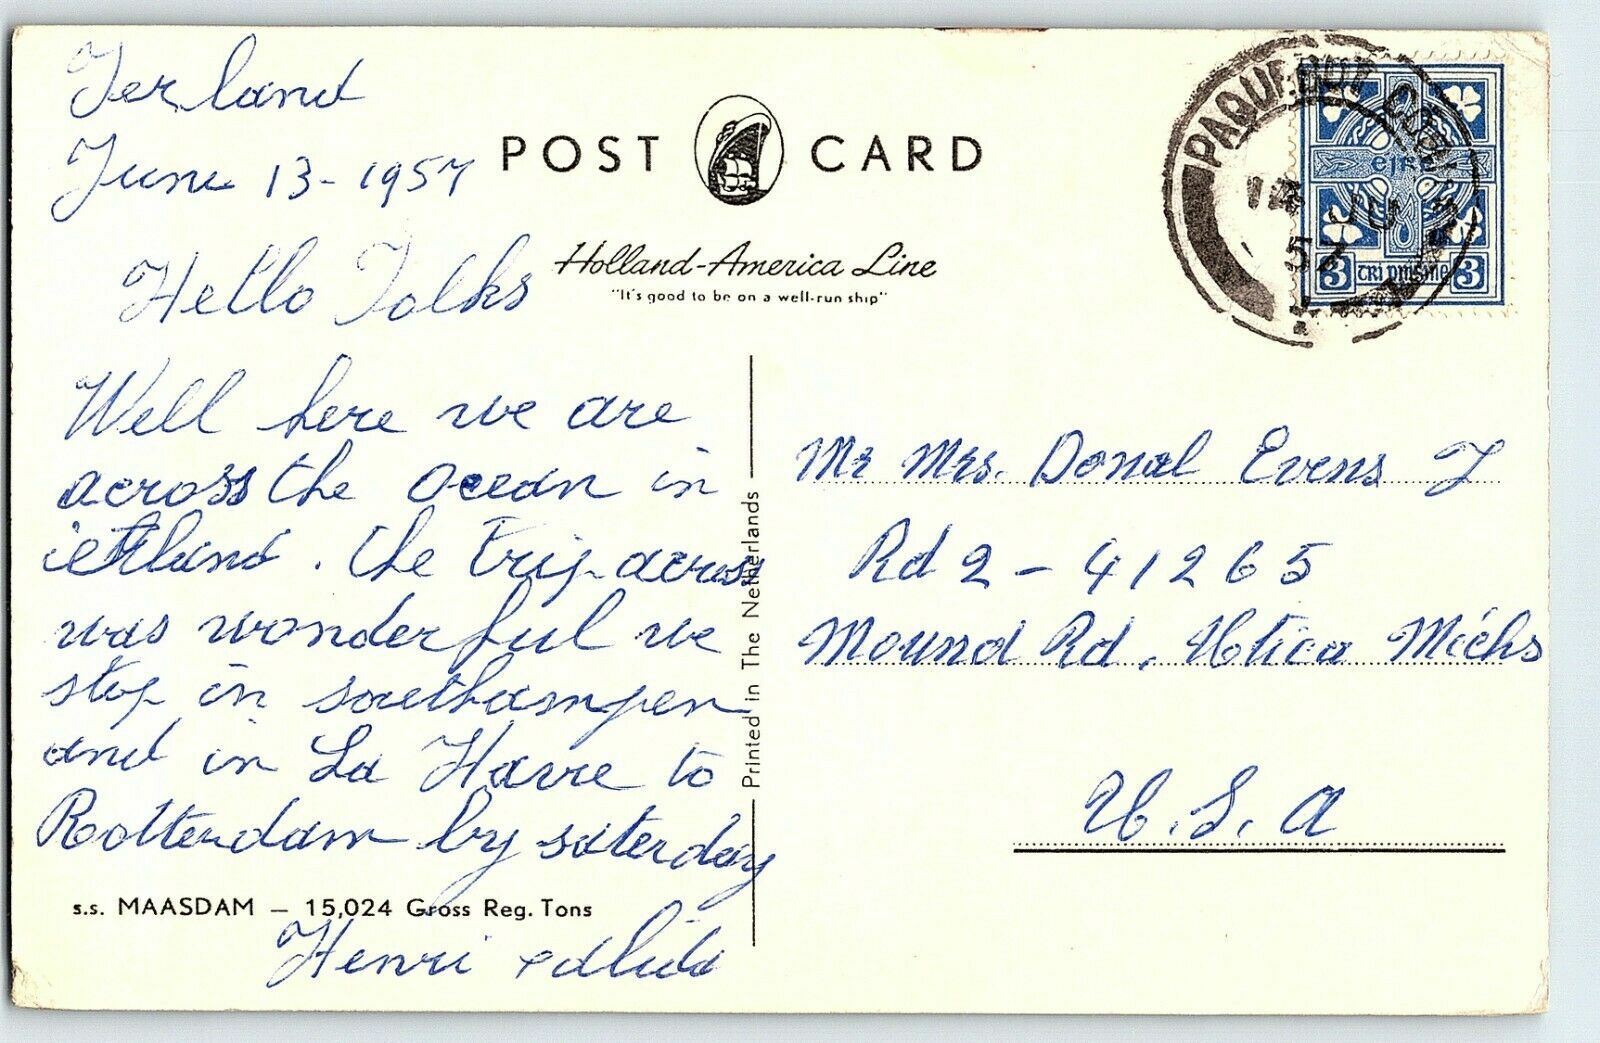 Ierland
June 13-1957
Hello Folks
Well here we are
across the ocean in
. the trip across
was wonderful we
stop in southampen
and in La Havre to
Rotterdam by saterday
Henri
POST CARD
Holland-America Line
"It's good to be on a well-run ship"
s.s. MAASDAM – 15,024 Gross Reg. Tons
Printed in The Netherlands
PAQUEBOT
JU
57
éire
3 trí pingne 3
Mr Mrs. Donal Evens J
Rd 2 - 41265
Mound Rd. Utica Michs
U.S.A